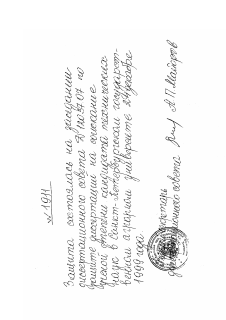 № 1911
Защита состоялась на заседании
диссертационного совета по
защите диссертаций на соискание
учёной степени кандидата технических
наук в Санкт-Петербургском государст-
венном аграрном университете декабре
1999 года
секретарь
совета А.П. Майоров